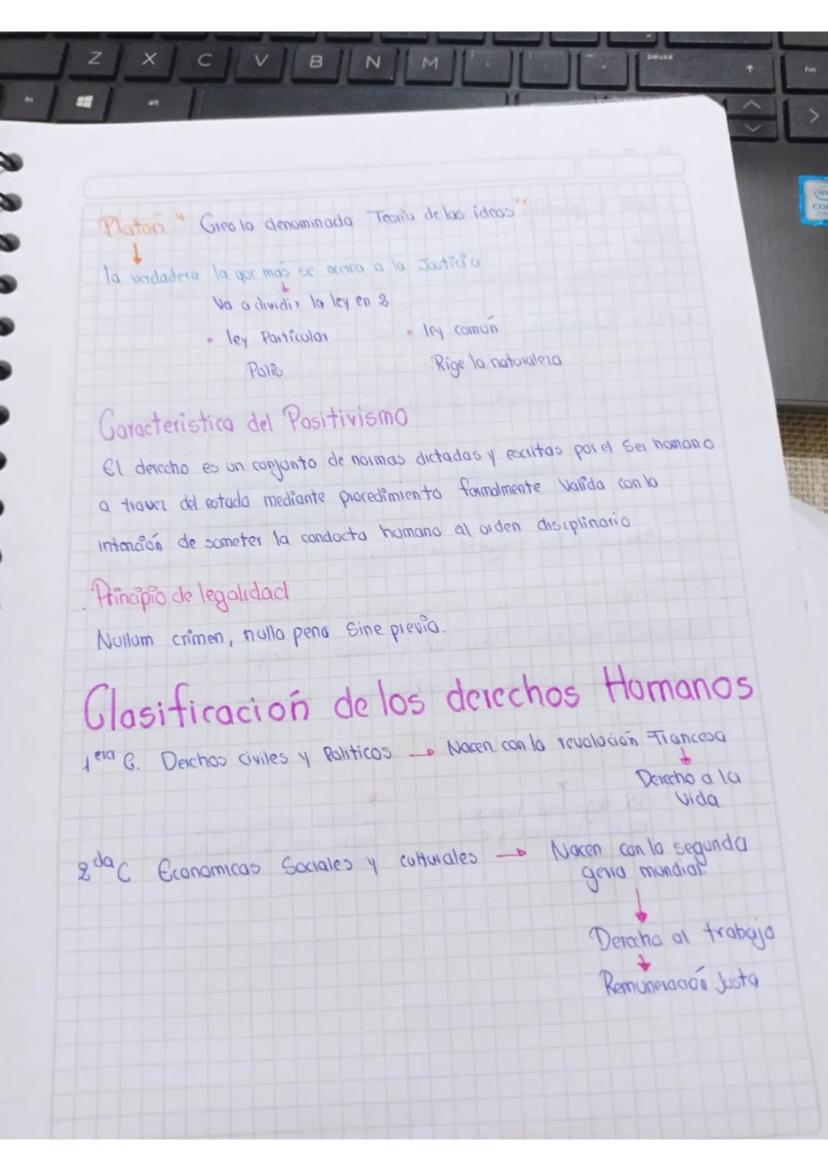 Z X C V B N M
pausa
fn
alt
fn
Platón " Creo la denominada Teoria de las ideas"
la verdadera la que más se acerca a la Justicia
Va a dividir la ley en 2
• ley Particular • ley común
Polis Rige la naturaleza
Caracteristica del Positivismo
El derecho es un conjunto de normas dictadas y escritas por el Ser humano
a travez del estado mediante procedimiento formalmente Valida con la
intención de someter la conducta humana al orden disiplinario
. Principio de legalidad
Nullum crimen, nulla pena Sine previa.
Clasificación de los derechos Humanos
1era G. Derchos civiles y Politicos → Nacen con la revolución Francesa
Derecho a la
Vida
2da G Economicas Sociales y culturales → Nacen con la segunda
gerra mundial.
Derecho al trabajo
Remuneración Justa